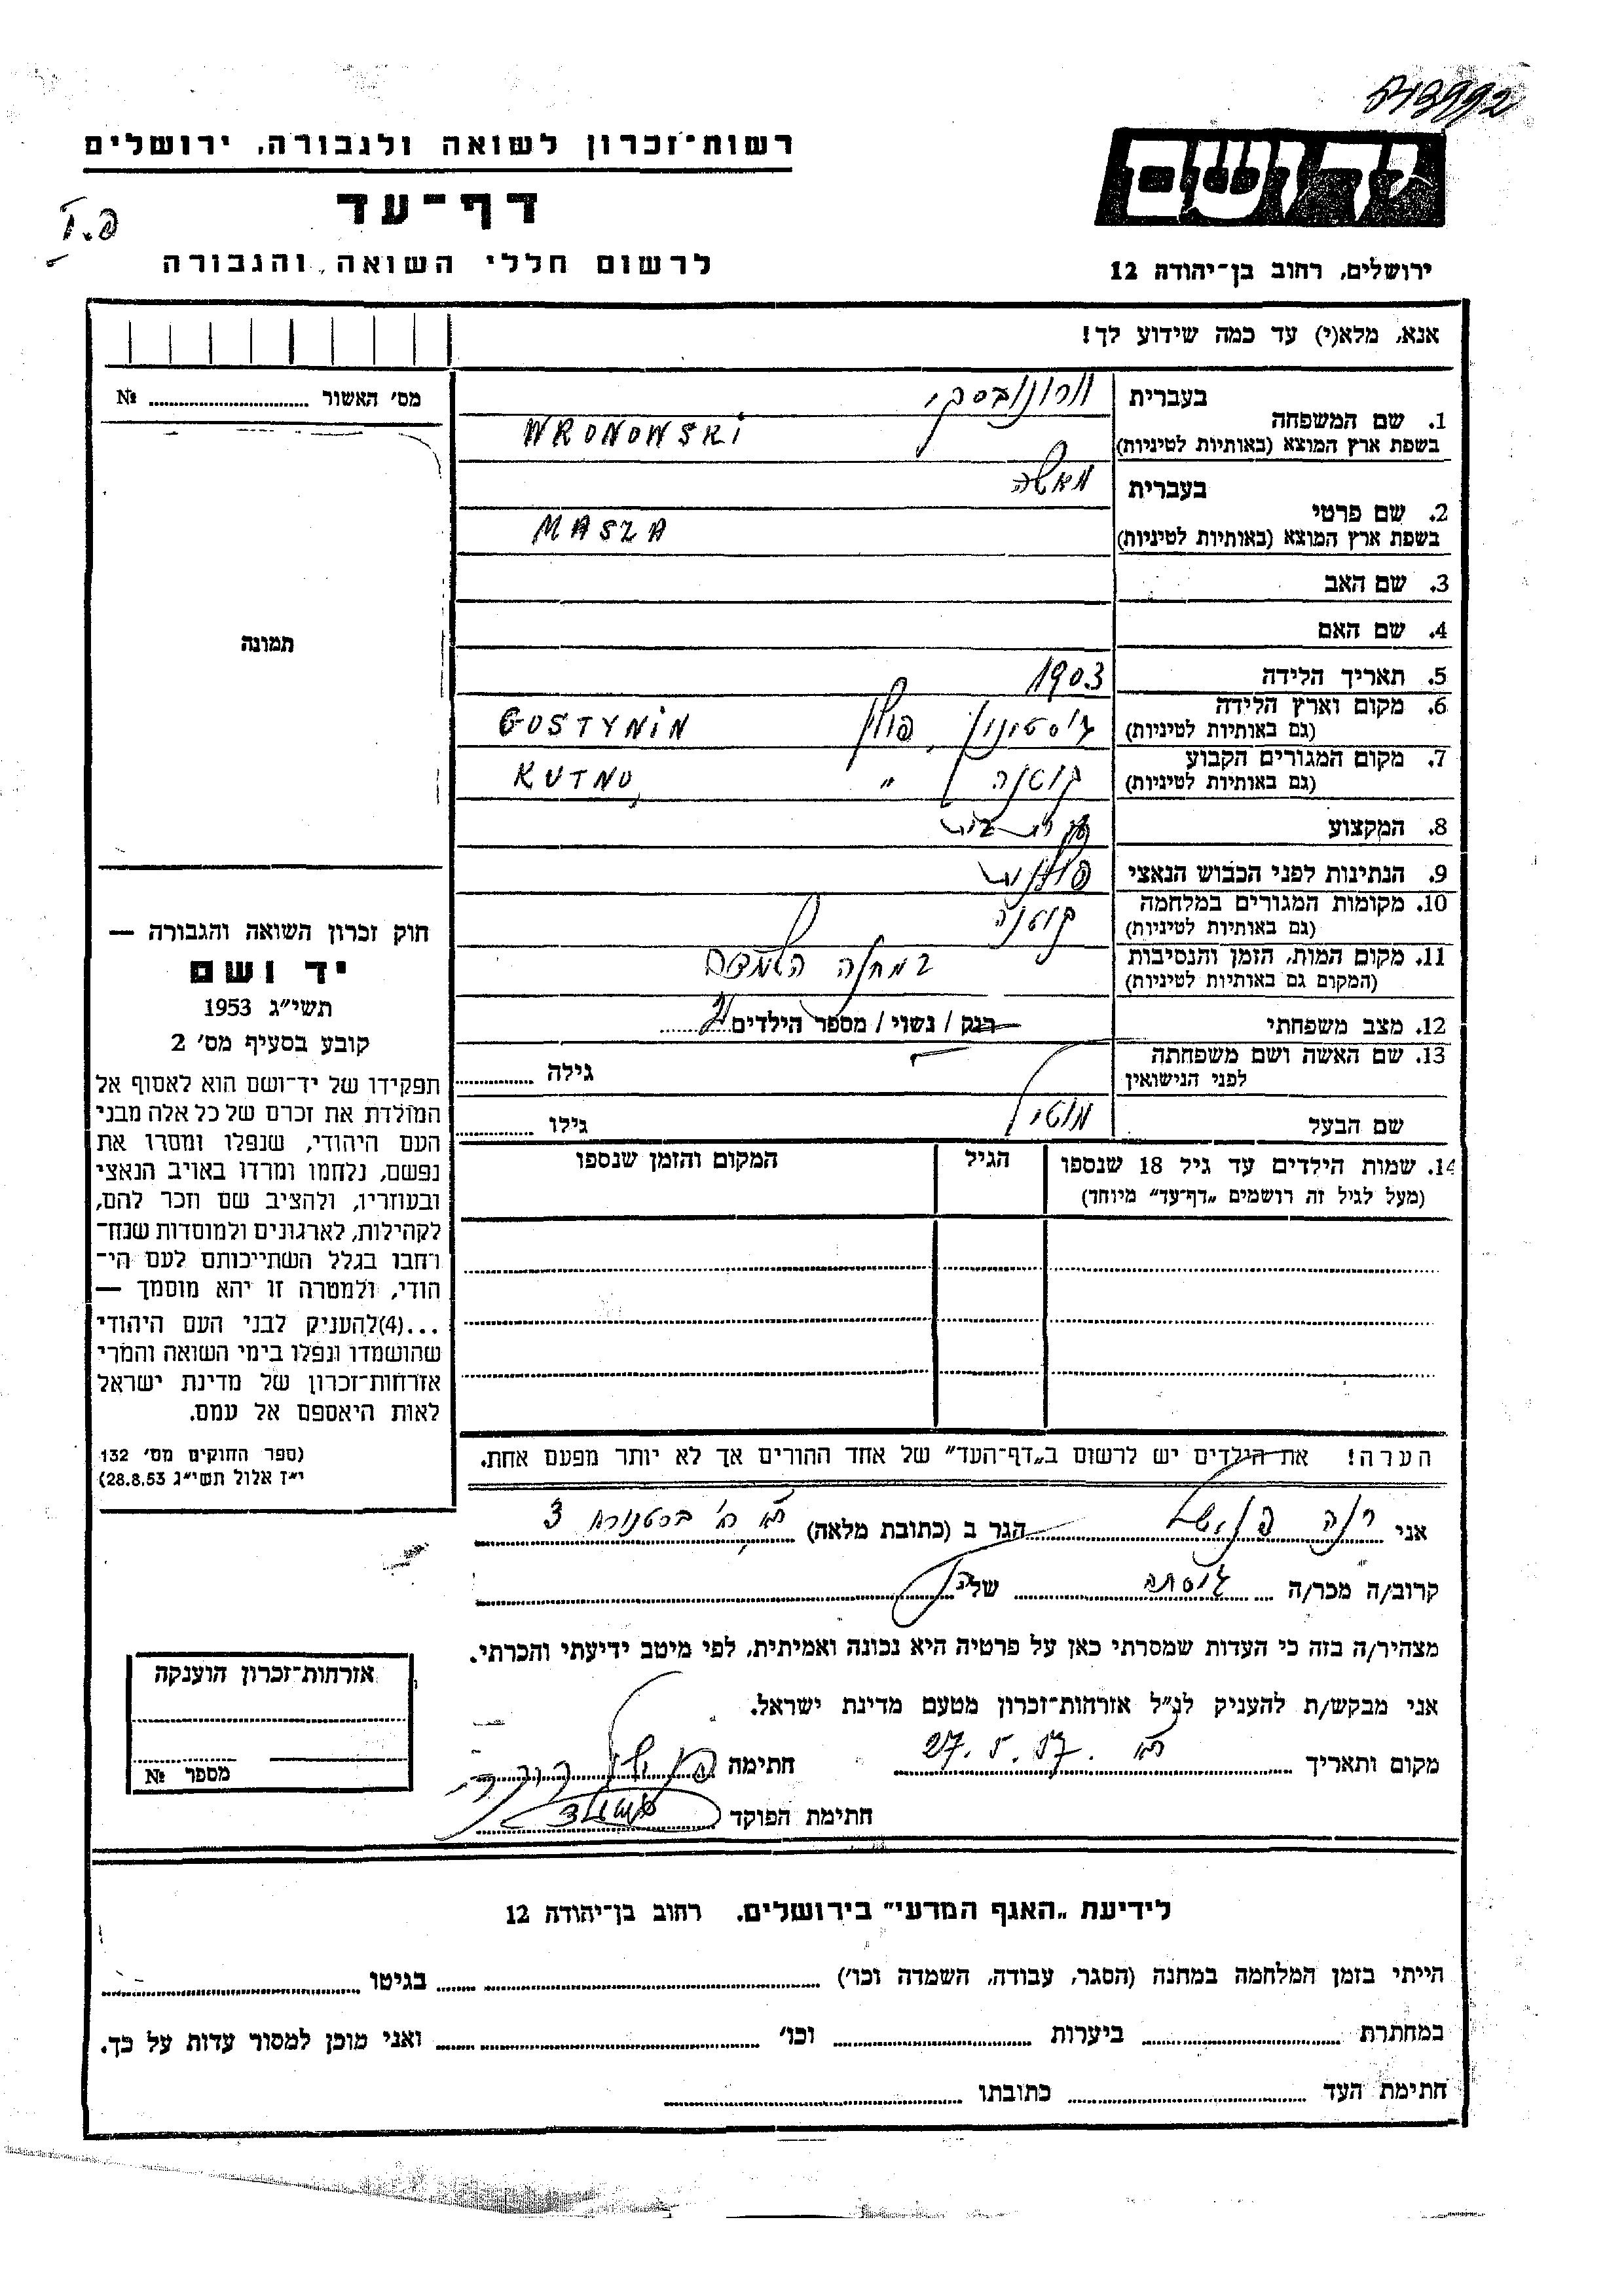 רשות־זכרון לשואה ולגבורה, ירושלים
דף־עד
לרשום חללי השואה והגבורה
יד ושם
ירושלים, רחוב בן־יהודה 12
אנא, מלא(י) עד כמה שידוע לך!
מס׳ האשור № 
תמונה
חוק זכרון השואה והגבורה —
יד ושם
תשי״ג 1953
קובע בסעיף מס׳ 2
תפקידו של יד־ושם הוא לאסוף אל
המולדת את זכרם של כל אלה מבני
העם היהודי, שנפלו ומסרו את
נפשם, נלחמו ומרדו באויב הנאצי
ובעוזריו, ולהציב שם וזכר להם,
לקהילות, לארגונים ולמוסדות שנח־
רחבו בגלל השתייכותם לעם הי־
הודי, ולמטרה זו יהא מוסמך —
...(4)להעניק לבני העם היהודי
שהושמדו ונפלו בימי השואה והמרי
אזרחות־זכרון של מדינת ישראל
לאות היאספם אל עמם.
(ספר החוקים מס׳ 132
י״ז אלול תשי״ג 28.8.53)
בעברית וורונובסקי
1. שם המשפחה
בשפת ארץ המוצא (באותיות לטיניות) WRONOWSKI
בעברית מאשה
2. שם פרטי
בשפת ארץ המוצא (באותיות לטיניות) MASZA
3. שם האב
4. שם האם
5. תאריך הלידה 1903
6. מקום וארץ הלידה
(גם באותיות לטיניות) גוסטינין, פולין GOSTYNIN
7. מקום המגורים הקבוע
(גם באותיות לטיניות) קוטנה " KUTNO
8. המקצוע
9. הנתינות לפני הכבוש הנאצי פולנית
10. מקומות המגורים במלחמה
(גם באותיות לטיניות) קוטנה
11. מקום המות, הזמן והנסיבות
(המקום גם באותיות לטיניות) במחנה השמדה
12. מצב משפחתי רווק / נשוי / מספר הילדים 2
13. שם האשה ושם משפחתה
לפני הנישואין גילה
שם הבעל גילו
14. שמות הילדים עד גיל 18 שנספו הגיל המקום והזמן שנספו
(מעל לגיל זה רושמים „דף־עד״ מיוחד)
הערה! את הילדים יש לרשום ב„דף־העד״ של אחד ההורים אך לא יותר מפעם אחת.
אני הגר ב (כתובת מלאה) 3
קרוב/ה מכר/ה גיסתה של
מצהיר/ה בזה כי העדות שמסרתי כאן על פרטיה היא נכונה ואמיתית, לפי מיטב ידיעתי והכרתי.
אני מבקש/ת להעניק לנ״ל אזרחות־זכרון מטעם מדינת ישראל.
מקום ותאריך 27.5.57 חתימה
חתימת הפוקד
אזרחות־זכרון הוענקה
מספר №
לידיעת „האגף המדעי״ בירושלים. רחוב בן־יהודה 12
הייתי בזמן המלחמה במחנה (הסגר, עבודה, השמדה וכו׳) בגיטו
במחתרת ביערות וכו׳ ואני מוכן למסור עדות על כך.
חתימת העד כתובתו